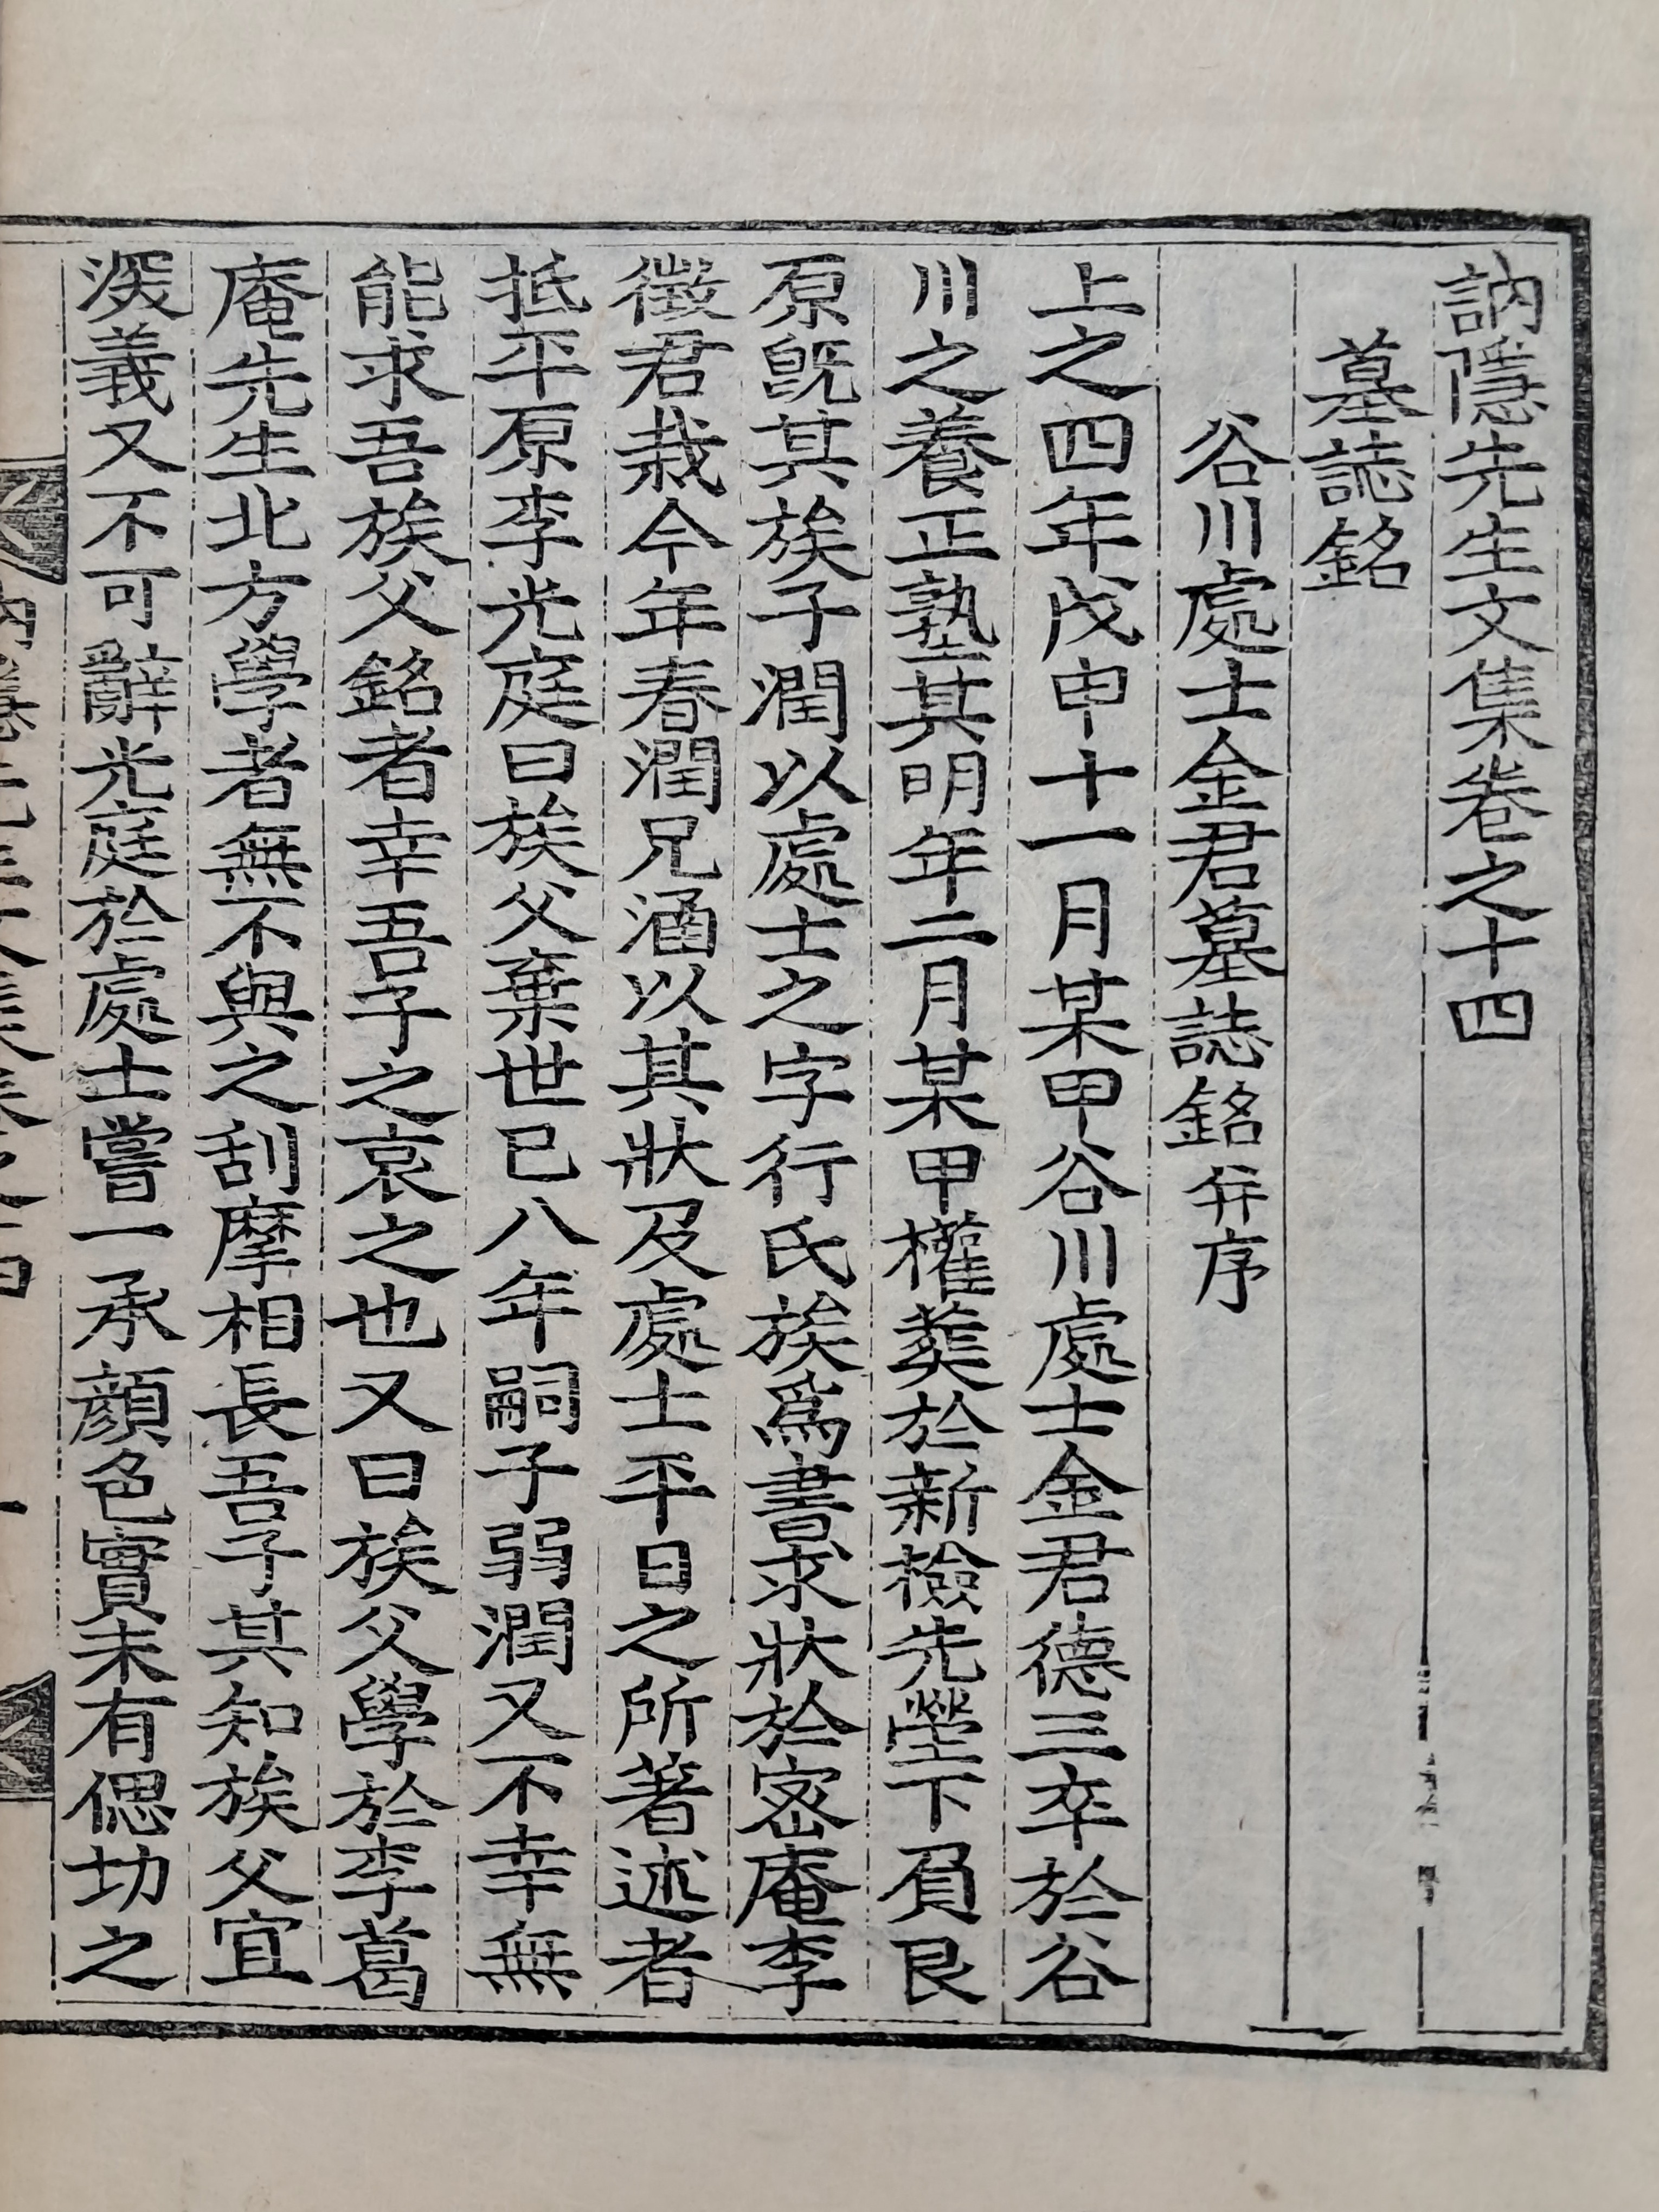 訥隱先生文集卷之十四
墓誌銘
谷川處士金君墓誌銘并序
上之四年戊申十一月某甲谷川處士金君德三卒於谷
川之養正塾其明年二月某甲權葬於新檢先塋下負艮
原旣其族子潤以處士之字行氏族爲書求狀於密庵李
徵君栽今年春潤兄涵以其狀及處士平日之所著述者
抵平原李光庭曰族父棄世已八年嗣子弱潤又不幸無
能求吾族父銘者幸吾子之哀之也又曰族父學於李葛
庵先生北方學者無不與之刮摩相長吾子其知族父宜
深義又不可辭光庭於處士嘗一承顔色實未有偲切之